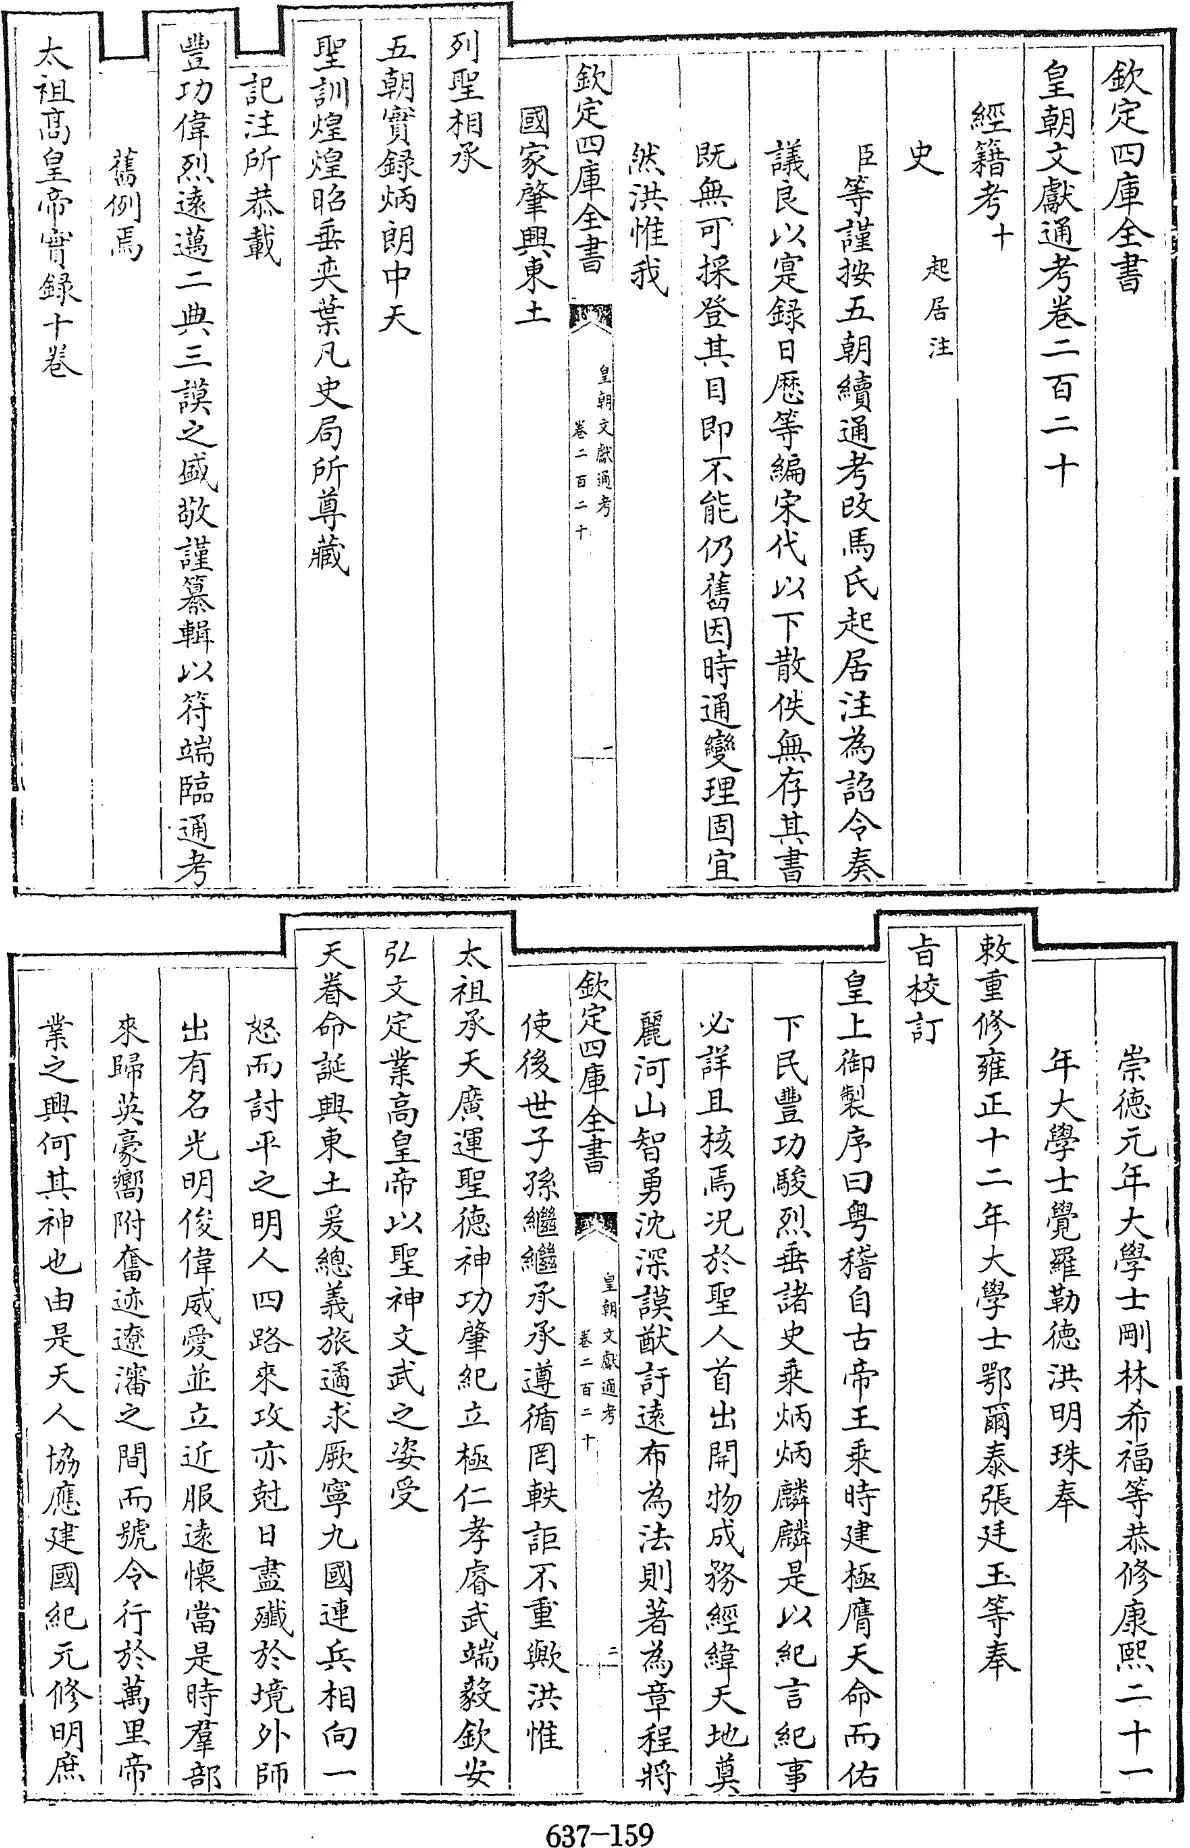 欽定四庫全書
皇朝文獻通考卷二百二十
經籍考十
史 起居注
臣等謹按五朝續通考改馬氏起居注為詔令奏
議良以寔録日厯等編宋代以下散佚無存其書
既無可採登其目即不能仍舊因時通變理固宜
然洪惟我
欽定四庫全書
皇朝文獻通考
卷二百二十
一
國家肇興東土
列聖相承
五朝實録炳朗中天
聖訓煌煌昭垂奕葉凡史局所尊藏
記注所恭載
豐功偉烈遠邁二典三謨之盛敬謹纂輯以符端臨通考
舊例焉
太祖高皇帝實録十卷
崇徳元年大學士剛林希福等恭修康熙二十一
年大學士覺羅勒徳洪明珠奉
敕重修雍正十二年大學士鄂爾泰張廷玉等奉
旨校訂
皇上御製序曰粤稽自古帝王乘時建極膺天命而佑
下民豐功駿烈垂諸史乘炳炳麟麟是以紀言紀事
必詳且核焉况於聖人首出開物成務經緯天地奠
麗河山智勇沈深謨猷訏遠布為法則著為章程將
欽定四庫全書
皇朝文獻通考
卷二百二十
二
使後世子孫繼繼承承遵循罔軼詎不重歟洪惟
太祖承天廣運聖徳神功肇紀立極仁孝睿武端毅欽安
弘文定業高皇帝以聖神文武之姿受
天眷命誕興東土爰總義旅遹求厥寧九國連兵相向一
怒而討平之明人四路來攻亦尅日盡殲於境外師
出有名光明俊偉威愛並立近服遠懷當是時羣部
來歸英豪嚮附奮迹遼瀋之間而號令行於萬里帝
業之興何其神也由是天人協應建國紀元修明庶
637-159